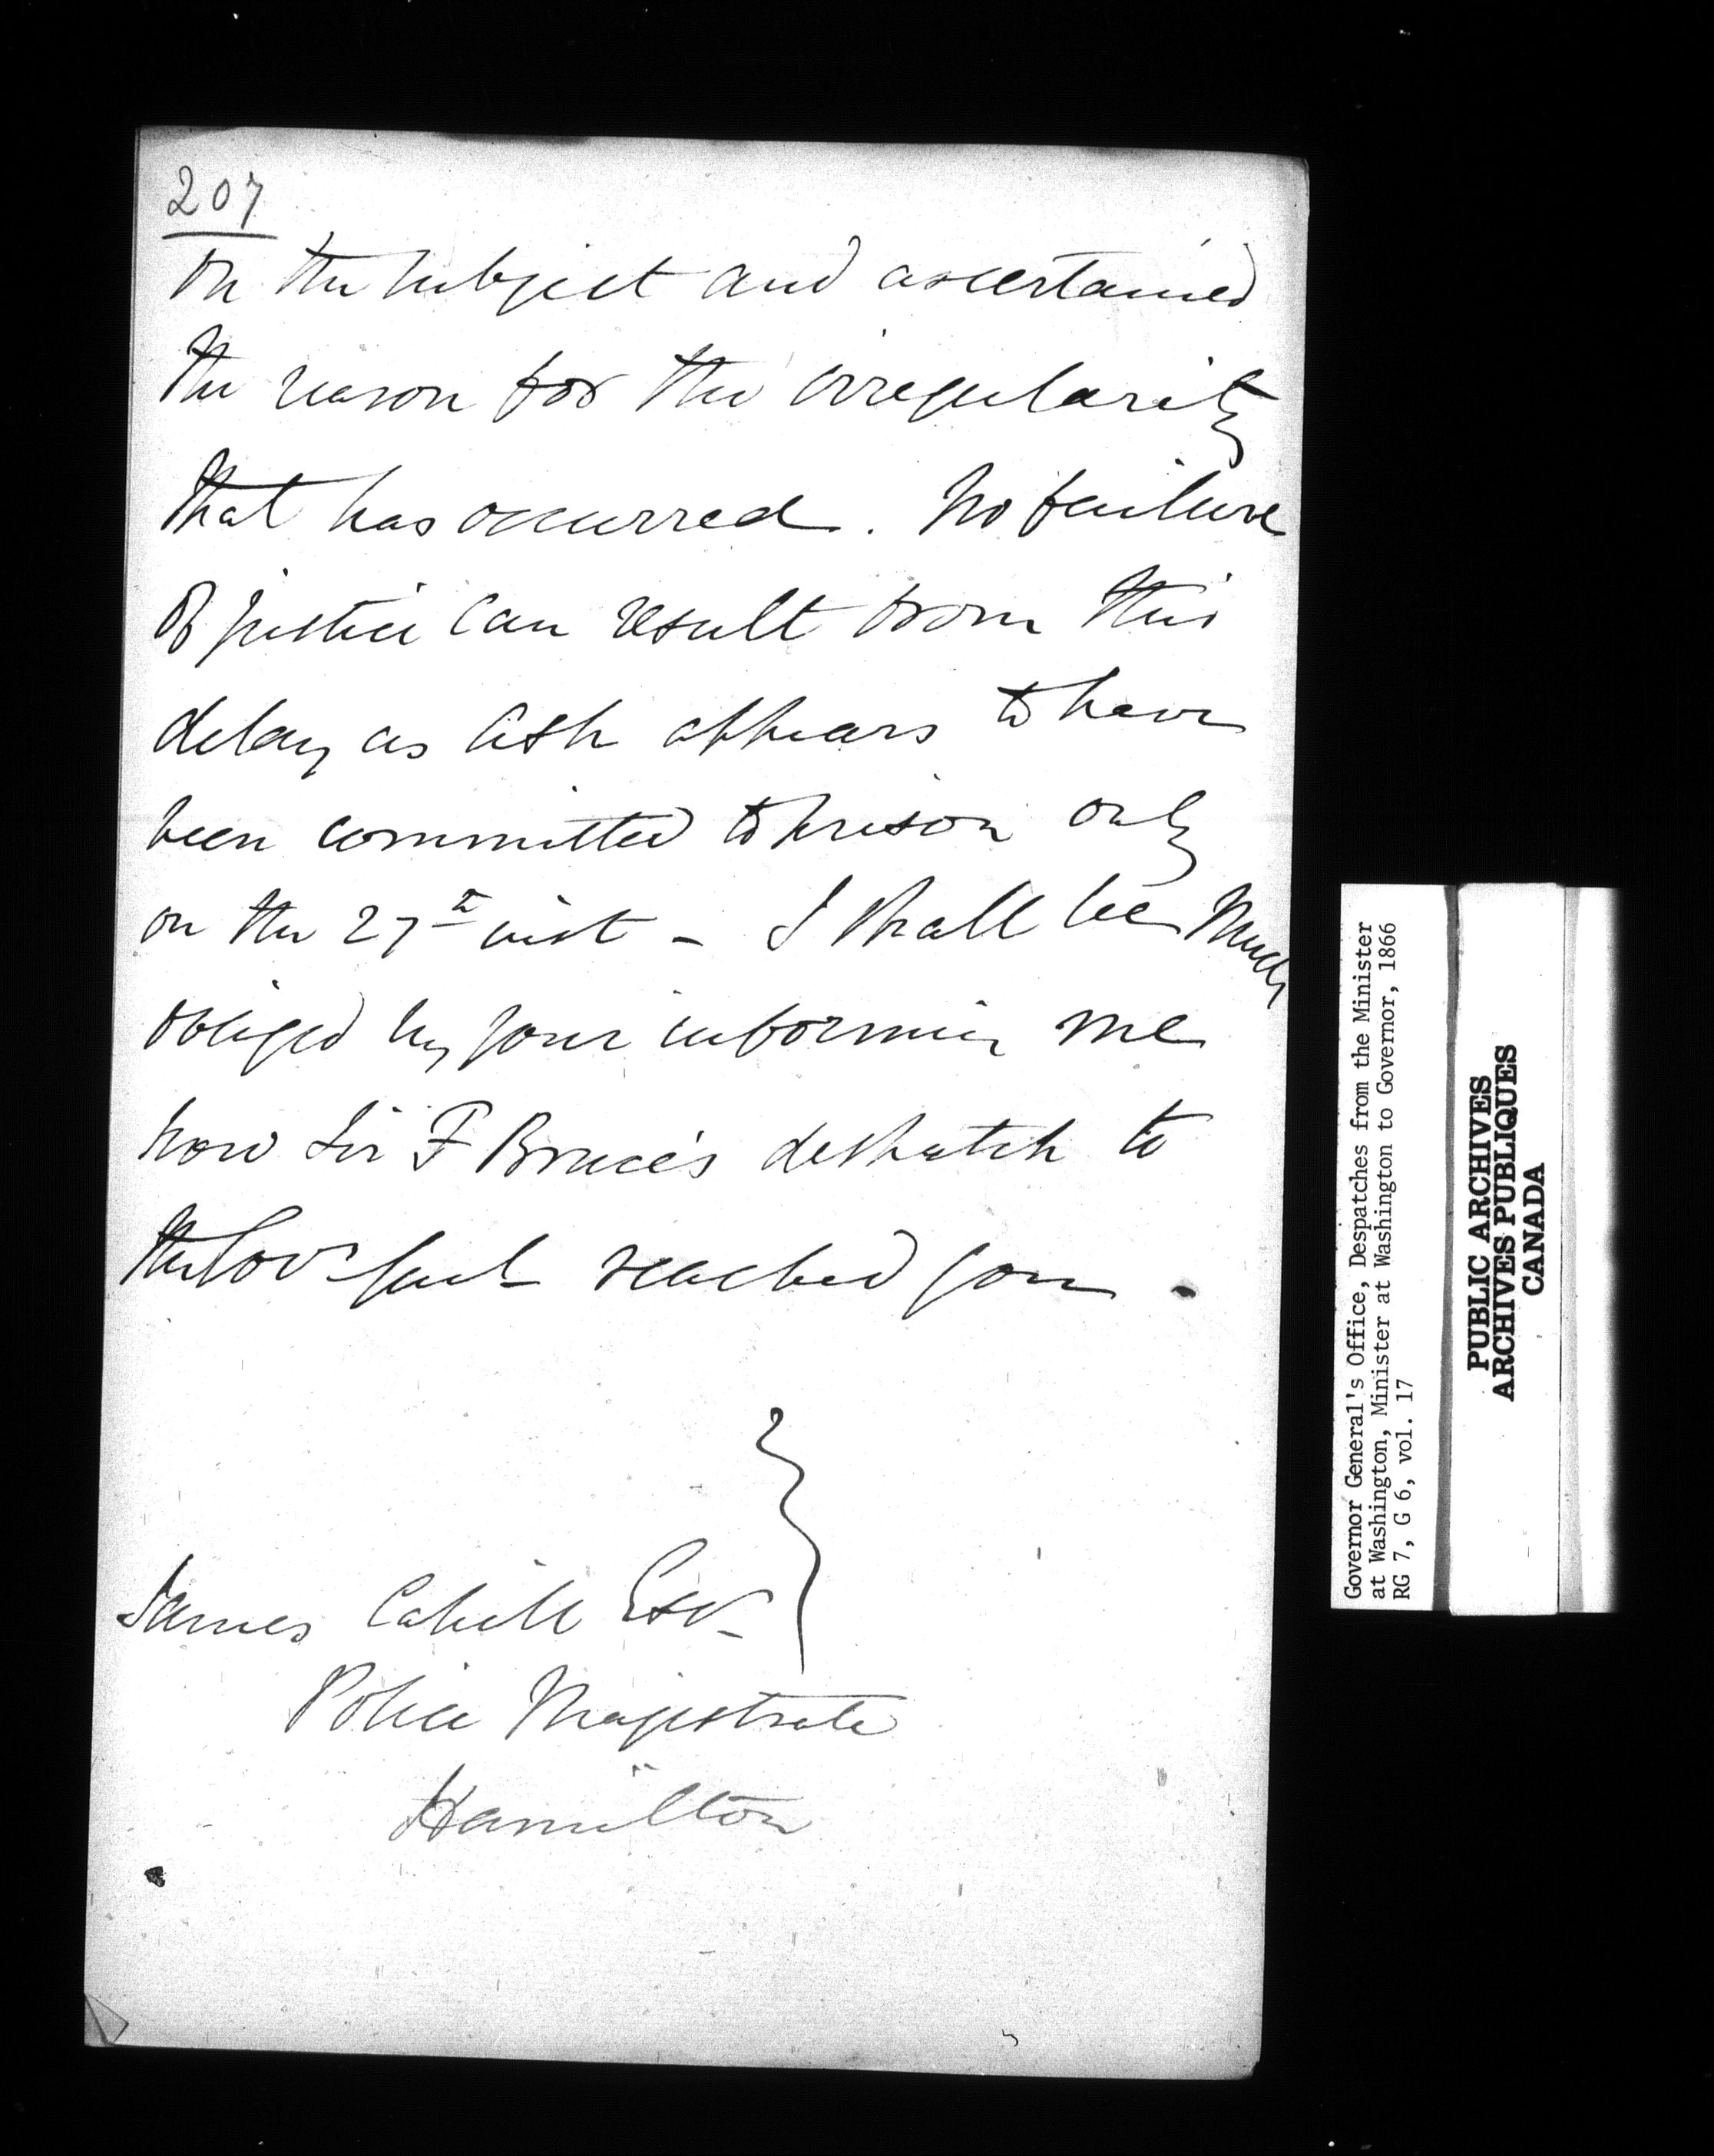 207
on the subject and ascertained
the reason for the irregularity
that has occurred. No failure
of justice can result from this
delay as Ash appears to have
been committed to prison only
on the 27th inst - I shall be much
obliged by your informing me
how Sir F Bruce's despatch to
the Govr Genl reached you.
James Cahill Esqr
Police Magistrate
Hamilton
Governor General's Office, Despatches from the Minister
at Washington, Minister at Washington to Governor, 1866
RG 7, G 6, vol. 17
PUBLIC ARCHIVES
ARCHIVES PUBLIQUES
CANADA